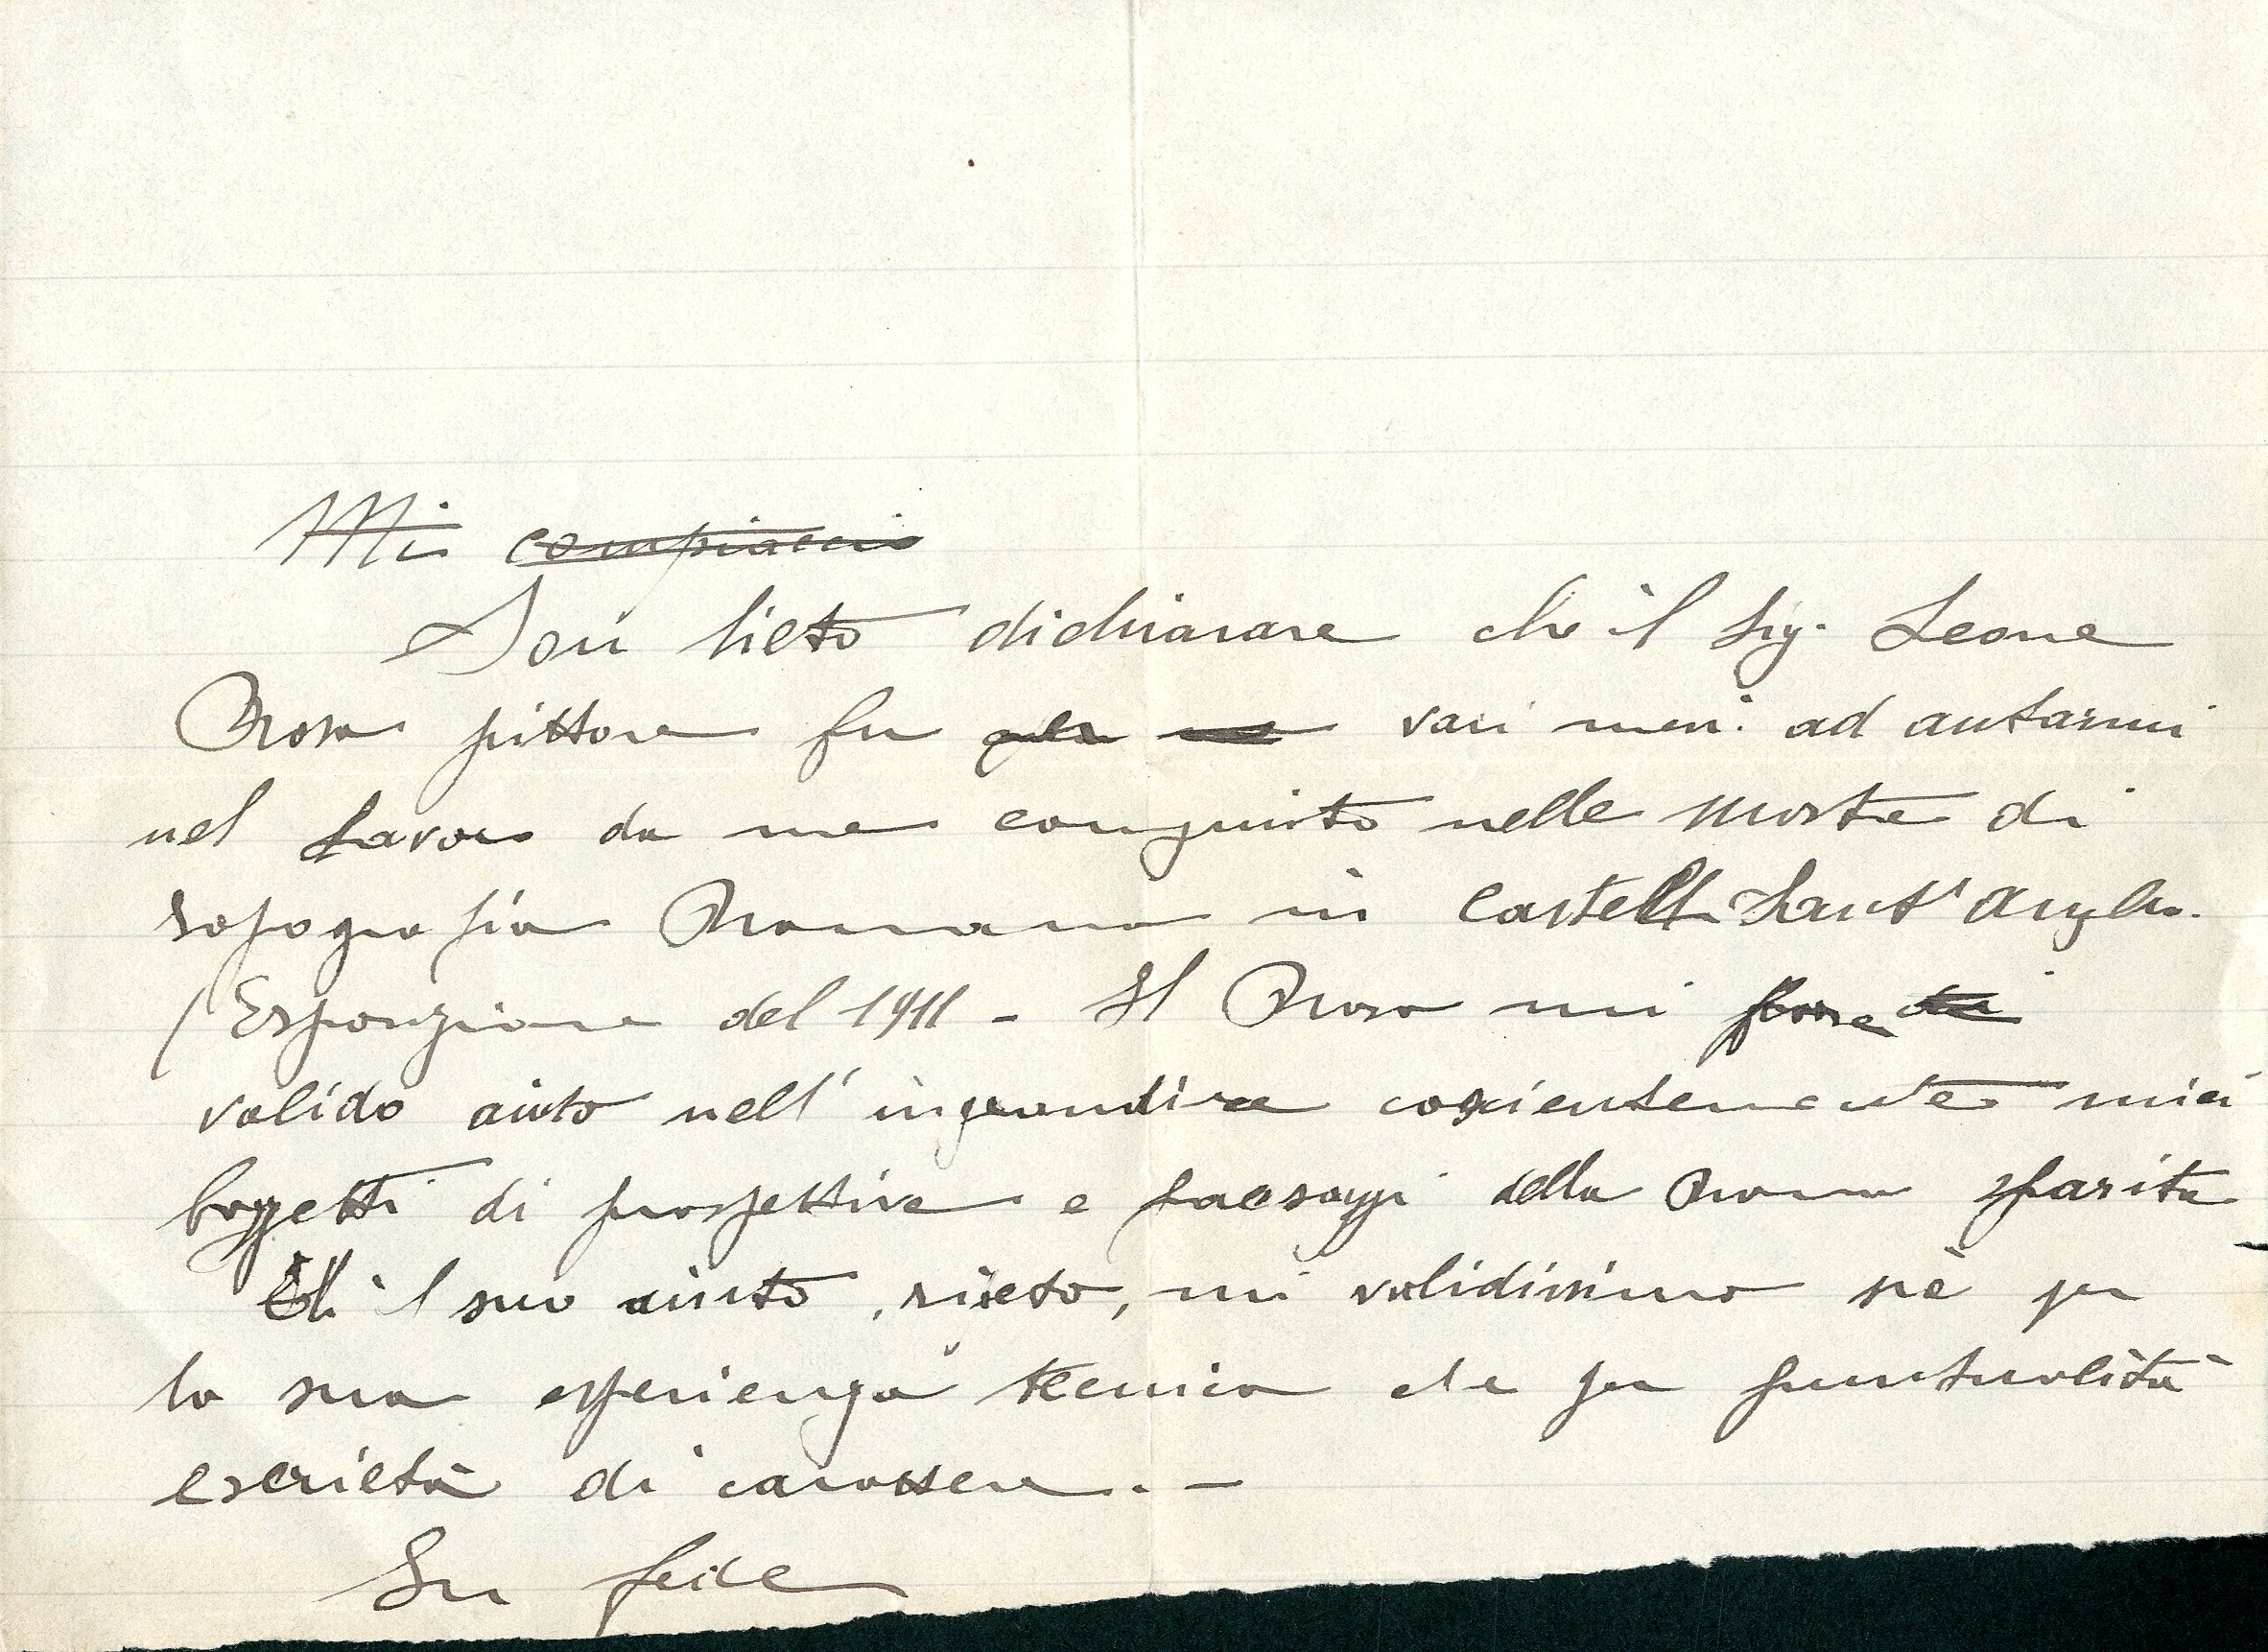 Mi compiaccio
Son lieto dichiarare che il Sig. Leone
Rosa pittore fu vari mesi ad autarmi
nel lavoro da me eseguito nella mostra di
topografia Romana in Castel Sant'Angelo.
(Esposizione del 1911 - Il Rosa mi
valido aiuto nell'ingrandire coscientemente miei
bozzetti di prospettive e paesaggi della Roma sparita
Ed il suo aiuto, ripeto, mi validissimo sia per
la sua esperienza tecnica che per puntualità
e serietà di carattere. -
In fede